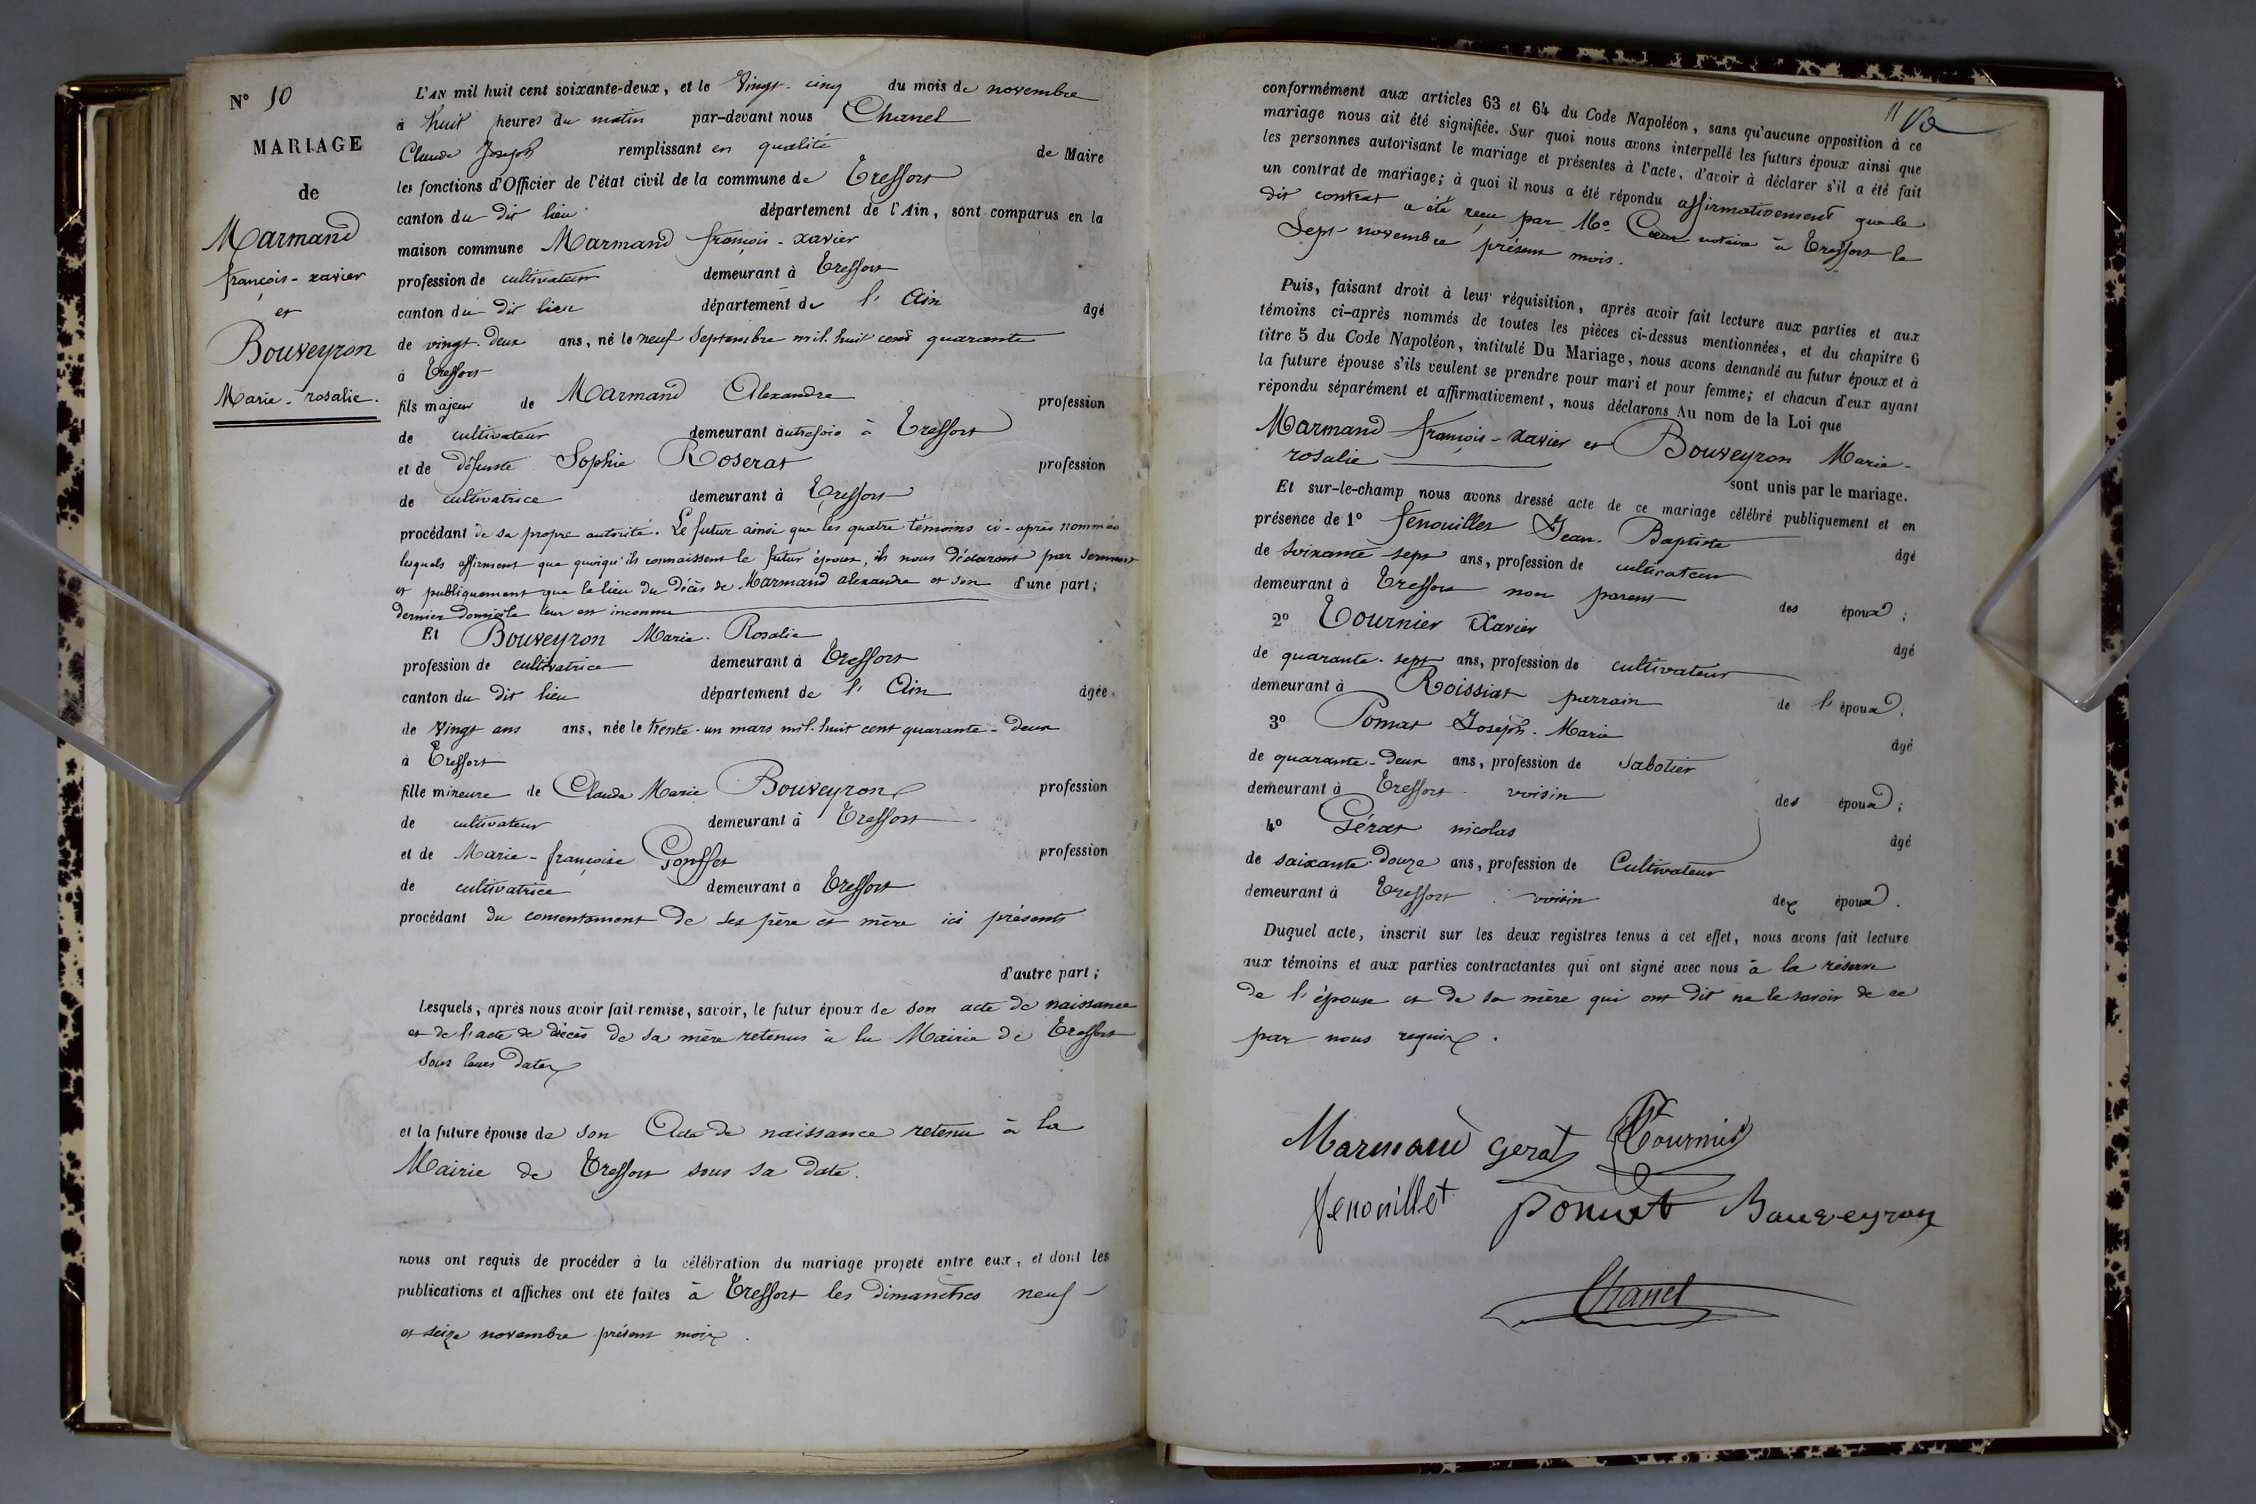 N° 10
MARIAGE
de
Marmand
françois-xavier
et
Bouveyron
Marie-rosalie.
L'AN mil huit cent soixante-deux, et le Vingt-cinq du mois de novembre
à huit heures du matin par-devant nous Chanel
Claude Joseph remplissant en qualité de Maire
les fonctions d'Officier de l'état civil de la commune de Treffort
canton du dit lieu département de l'Ain, sont comparus en la
maison commune Marmand françois-xavier
profession de cultivateur demeurant à Treffort
canton du dit lieu département de l'Ain âgé
de vingt-deux ans, né le neuf Septembre mil huit cent quarante
à Treffort
fils majeur de Marmand Alexandre profession
de cultivateur demeurant autrefois à Treffort
et de défunte Sophie Roserat profession
de cultivatrice demeurant à Treffort
procédant de sa propre autorité. Le futur ainsi que les quatre témoins ci-après nommés
lesquels affirment que quoiqu'ils connaissent le futur époux, ils nous déclarent par serment
et publiquement que le lieu du décès de Marmand alexandre et son d'une part;
dernier domicile leur est inconnu
Et Bouveyron Marie-Rosalie
profession de cultivatrice demeurant à Treffort
canton du dit lieu département de l'Ain âgée
de Vingt ans ans, née le trente-un mars mil-huit cent quarante-deux
à Treffort
fille mineure de Claude Marie Bouveyron profession
de cultivateur demeurant à Treffort
et de Marie-françoise Gonffet profession
de cultivatrice demeurant à Treffort
procédant du consentement de ses père et mère ici présents
d'autre part;
Lesquels, après nous avoir fait remise, savoir, le futur époux de son acte de naissance
et de l'acte de décès de sa mère retenus à la Mairie de Treffort
sous leurs dates
et la future épouse de son Acte de naissance retenu à la
Mairie de Treffort sous sa date.
nous ont requis de procéder à la célébration du mariage projeté entre eux, et dont les
publications et affiches ont été faites à Treffort les dimanches neuf
et seize novembre présent mois.
11
conformément aux articles 63 et 64 du Code Napoléon, sans qu'aucune opposition à ce
mariage nous ait été signifiée. Sur quoi nous avons interpellé les futurs époux ainsi que
les personnes autorisant le mariage et présentes à l'acte, d'avoir à déclarer s'il a été fait
un contrat de mariage; à quoi il nous a été répondu affirmativement que le
dit contrat a été reçu par Me Cœur notaire à Treffort le
Sept novembre présent mois.
Puis, faisant droit à leur réquisition, après avoir fait lecture aux parties et aux
témoins ci-après nommés de toutes les pièces ci-dessus mentionnées, et du chapitre 6
titre 5 du Code Napoléon, intitulé Du Mariage, nous avons demandé au futur époux et à
la future épouse s'ils veulent se prendre pour mari et pour femme; et chacun d'eux ayant
répondu séparément et affirmativement, nous déclarons Au nom de la Loi que
Marmand françois-xavier et Bouveyron Marie-
rosalie
sont unis par le mariage.
Et sur-le-champ nous avons dressé acte de ce mariage célébré publiquement et en
présence de 1° fenouillet Jean-Baptiste âgé
de soixante sept ans, profession de cultivateur
demeurant à Treffort non parent des époux;
2° Tournier Xavier âgé
de quarante-sept ans, profession de cultivateur
demeurant à Roissiat parrain de l'époux;
3° Pomat Joseph-Marie âgé
de quarante-deux ans, profession de sabotier
demeurant à Treffort voisin des époux;
4° Gérat nicolas âgé
de soixante-douze ans, profession de Cultivateur
demeurant à Treffort voisin des époux.
Duquel acte, inscrit sur les deux registres tenus à cet effet, nous avons fait lecture
aux témoins et aux parties contractantes qui ont signé avec nous à la réserve
de l'épouse et de sa mère qui ont dit ne le savoir de ce
par nous requis.
Marmand Gerat Tournier
fenouillet pomat Bouveyron
Chanel